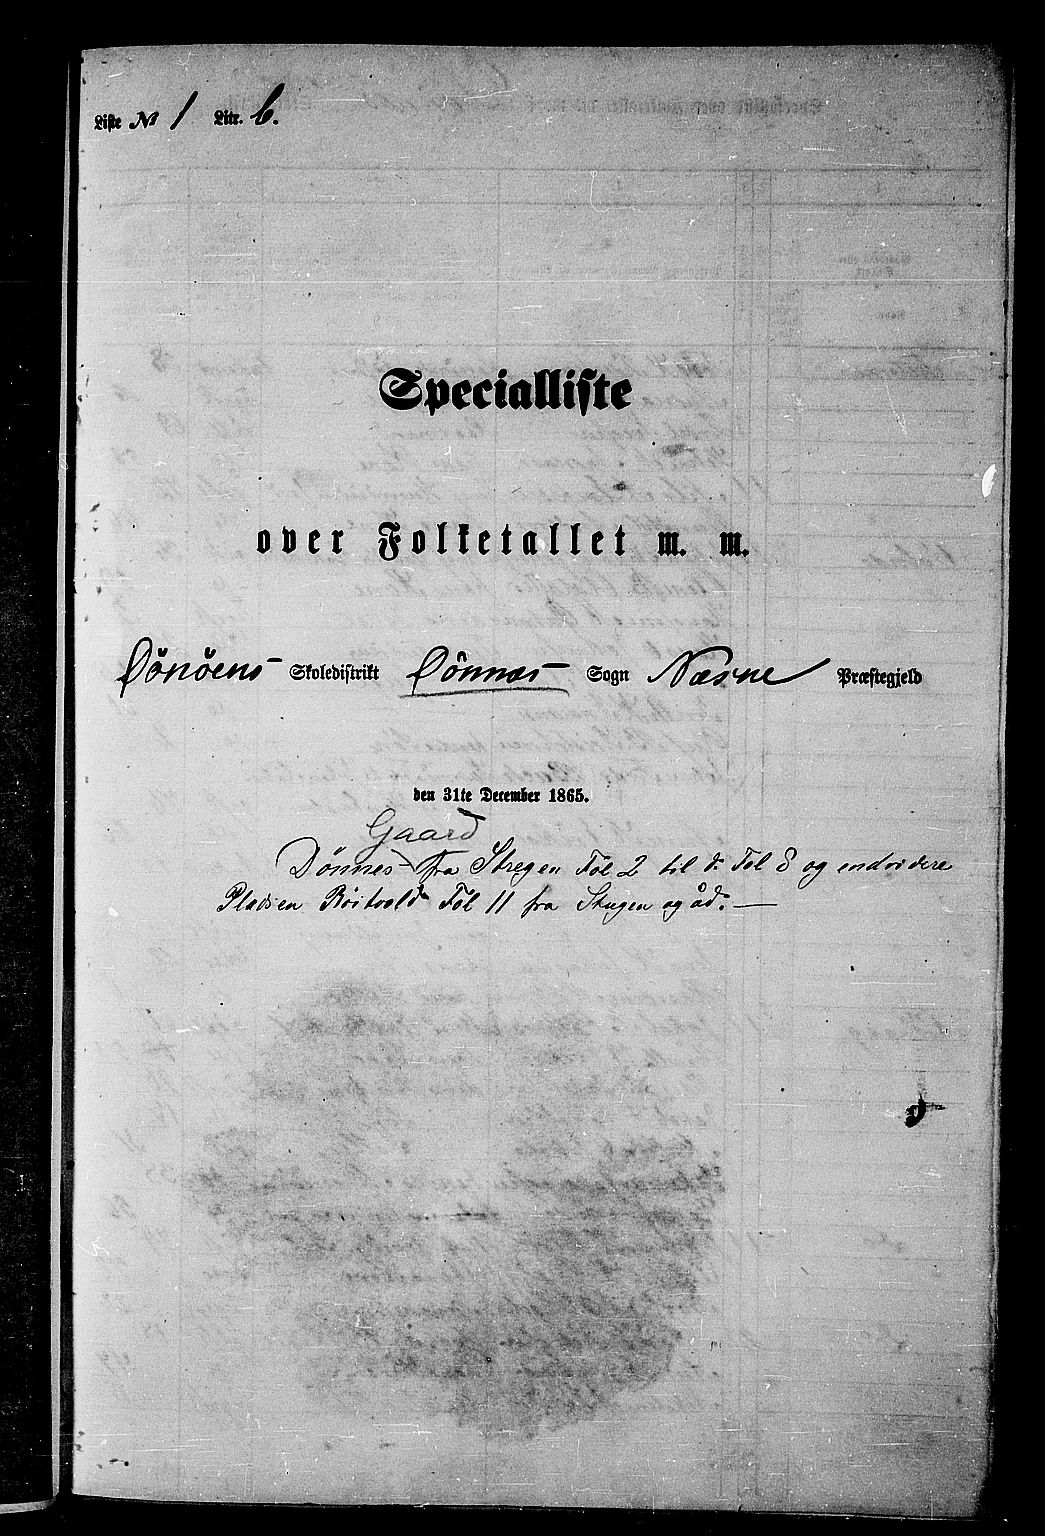 Liste № 1 Litr. b.
Specialliste
over Folketallet m. m.
Dönöens Skoledistrikt Dönnæs Sogn Næsne Præstegjeld
den 31te December 1865.
Gaard
Dönnes fra Stregen Föl 2 til d. Föl 8 og endvidere
Pladsen Röitvold Föl 11 fra Stregen og